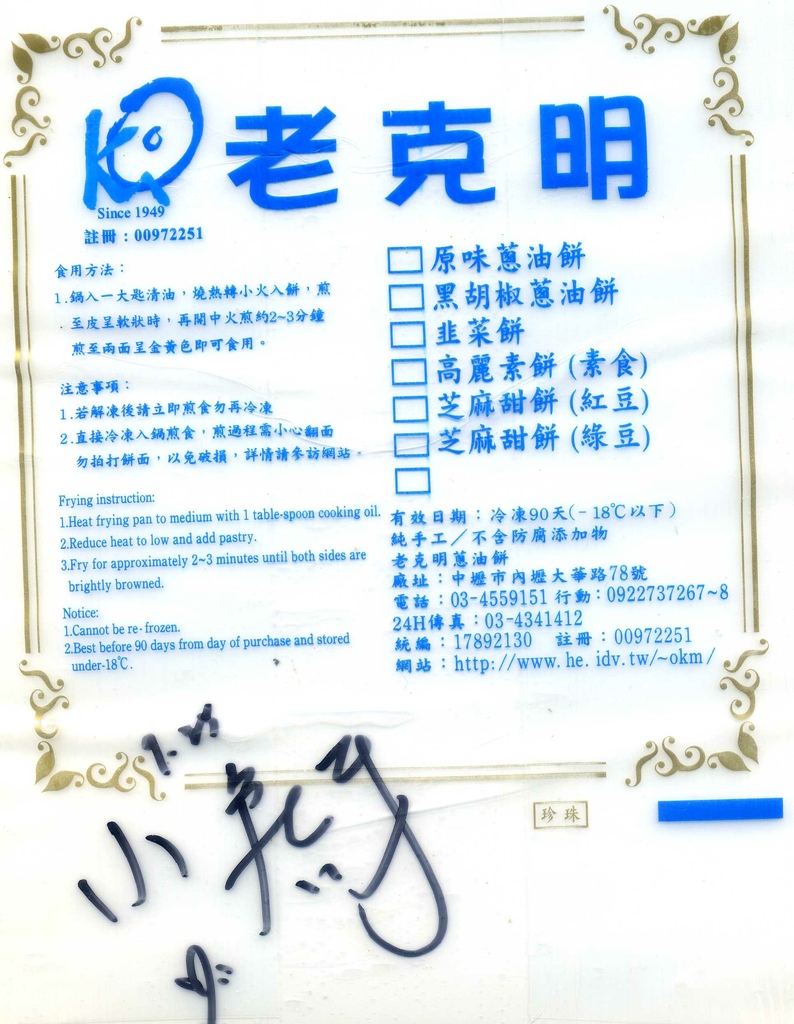 老克明
Since 1949
註冊：00972251
食用方法：
1.鍋入一大匙清油，燒熱轉小火入餅，煎
至皮呈軟狀時，再開中火煎約2~3分鐘
煎至兩面呈金黃色即可食用。
注意事項：
1.若解凍後請立即煎食勿再冷凍
2.直接冷凍入鍋煎食，煎過程需小心翻面
勿拍打餅面，以免破損，詳情請參訪網站。
Frying instruction:
1.Heat frying pan to medium with 1 table-spoon cooking oil.
2.Reduce heat to low and add pastry.
3.Fry for approximately 2~3 minutes until both sides are
brightly browned.
Notice:
1.Cannot be re-frozen.
2.Best before 90 days from day of purchase and stored
under-18℃.
原味蔥油餅
黑胡椒蔥油餅
韭菜餅
高麗素餅(素食)
芝麻甜餅(紅豆)
芝麻甜餅(綠豆)
有效日期：冷凍90天(-18℃以下)
純手工／不含防腐添加物
老克明蔥油餅
廠址：中壢市內壢大華路78號
電話：03-4559151 行動：0922737267~8
24H傳真：03-4341412
統編：17892130 註冊：00972251
網站：http://www.he.idv.tw/~okm/
珍珠
小